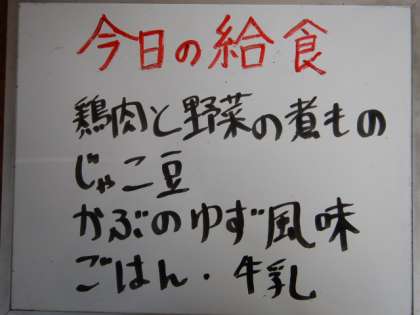 今日の給食
鶏肉と野菜の煮もの
じゃこ豆
かぶのゆず風味
ごはん・牛乳